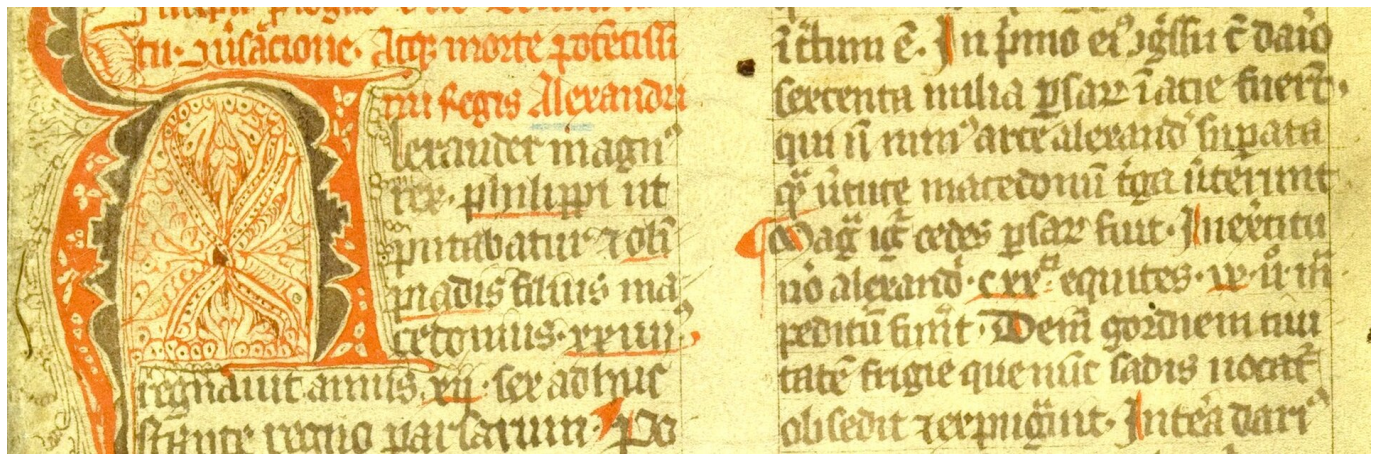 tu. ⁊ ūsacione. Atq; morte potētissi
mi Regis Alexandri
lexander magn⁹
rex. philippi ut
putabatur ⁊ oli
piadis filius ma
cedonius. xxiiii
regnauit annis. xii. sex adhuc
stante regno parsarum. Po
ī ctum ē. In p̄mo ei⁹ ɔgͥssu c̄ dario
sexcenta milia ꝑsaꝝ ī acie fuer̄t.
qui ū mim⁹ arte alexand̓ suꝑata
qͣ̄ ūtute macedonū tͥga ūterunt
Magͣ igͥ cedes ꝑsaꝝ fuit. In ex̄citu
u̾o alexand̓. c xx. equites. ix. u̾o. m̄
peditū fuer̄t. Dem̄ gordiem ciui
tatē frigie que nūc sadis uocat̄
obsedit ⁊ expugͣuit. Int̾ea dari⁹